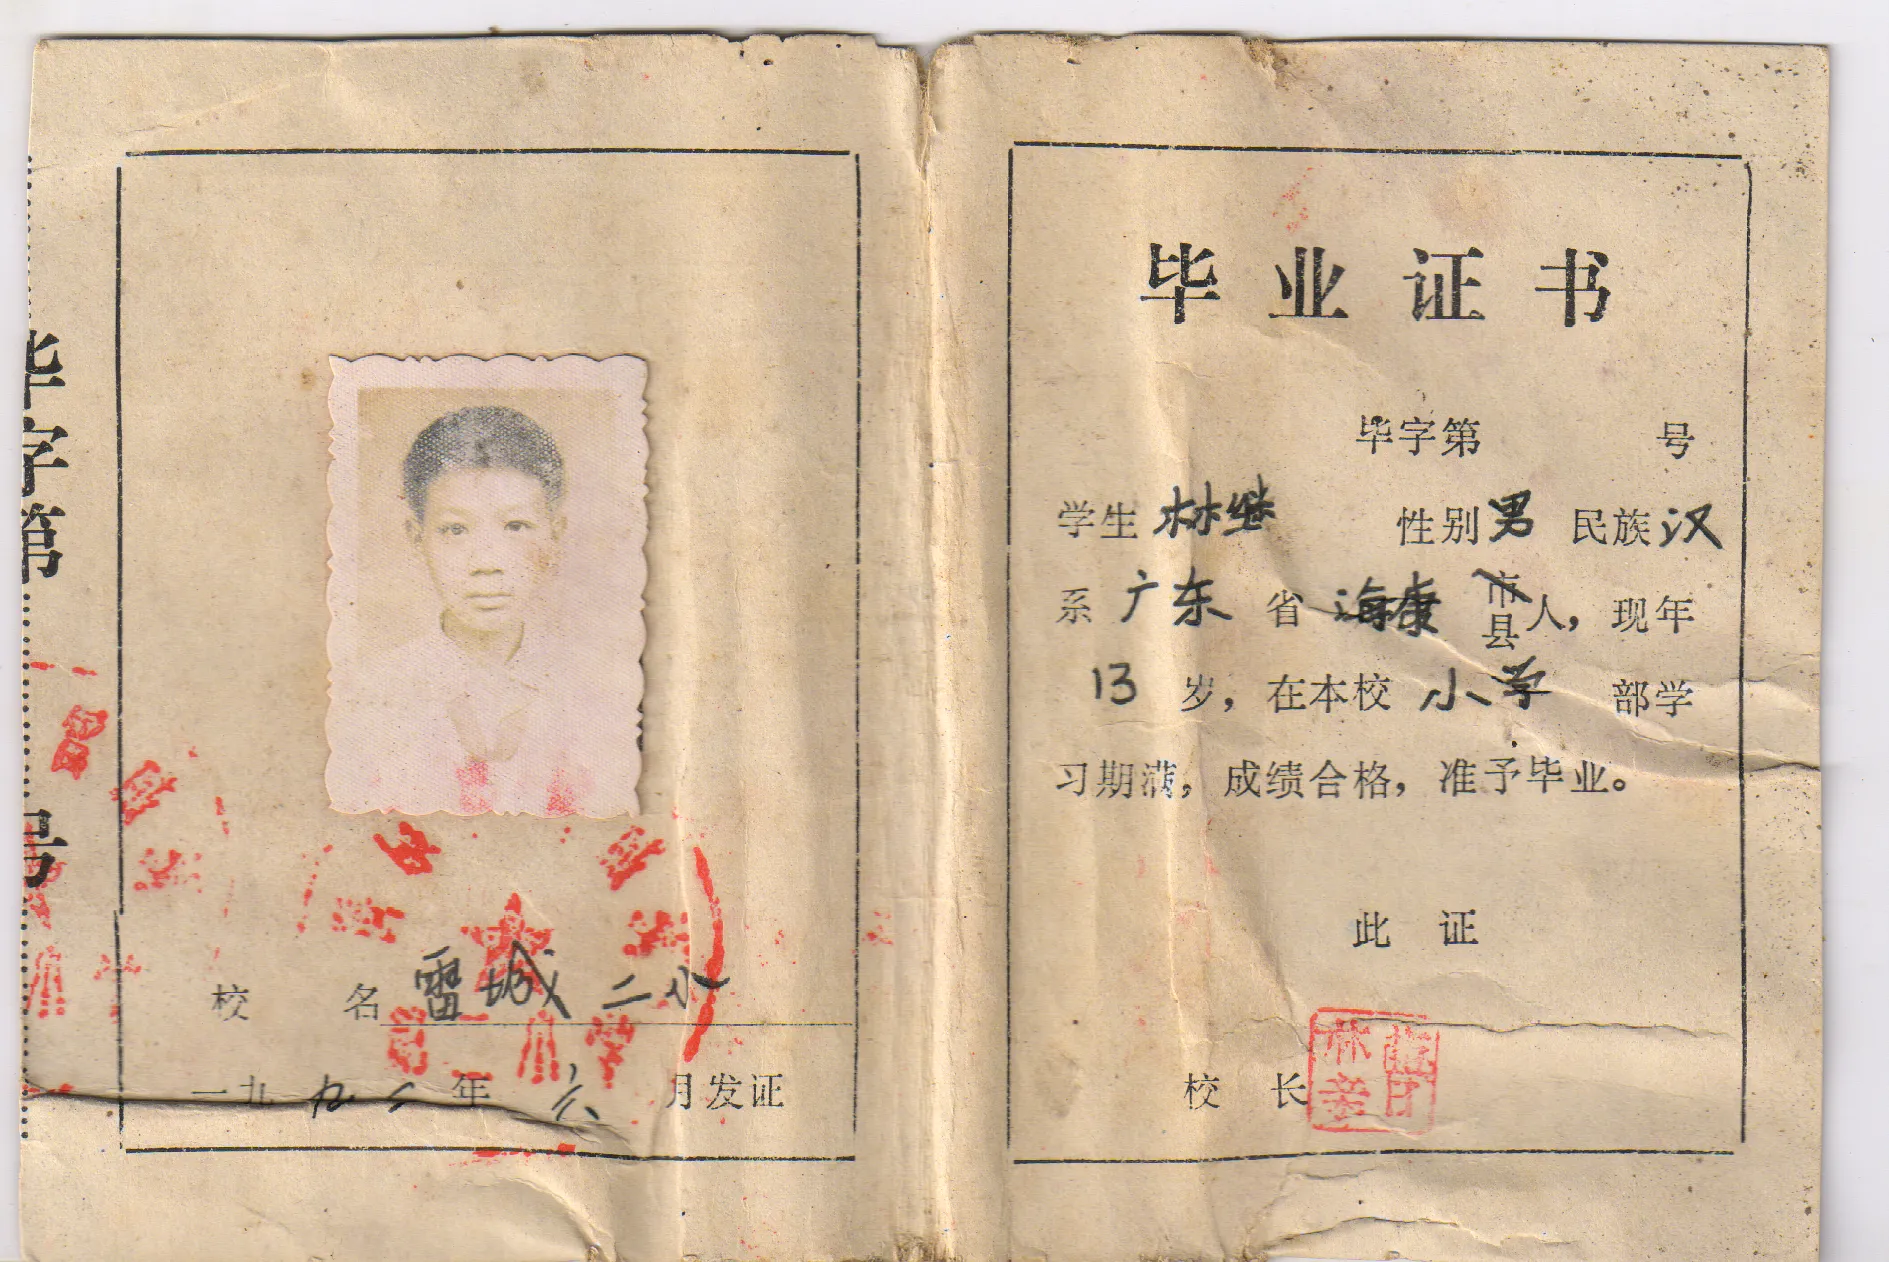 毕字第 号
校 名 雷城二小
一九九二年六月发证
毕业证书
毕字第 号
学生 林继 性别 男 民族 汉
系 广东 省 海康 市县人，现年
13 岁，在本校 小学 部学
习期满，成绩合格，准予毕业。
此 证
校 长